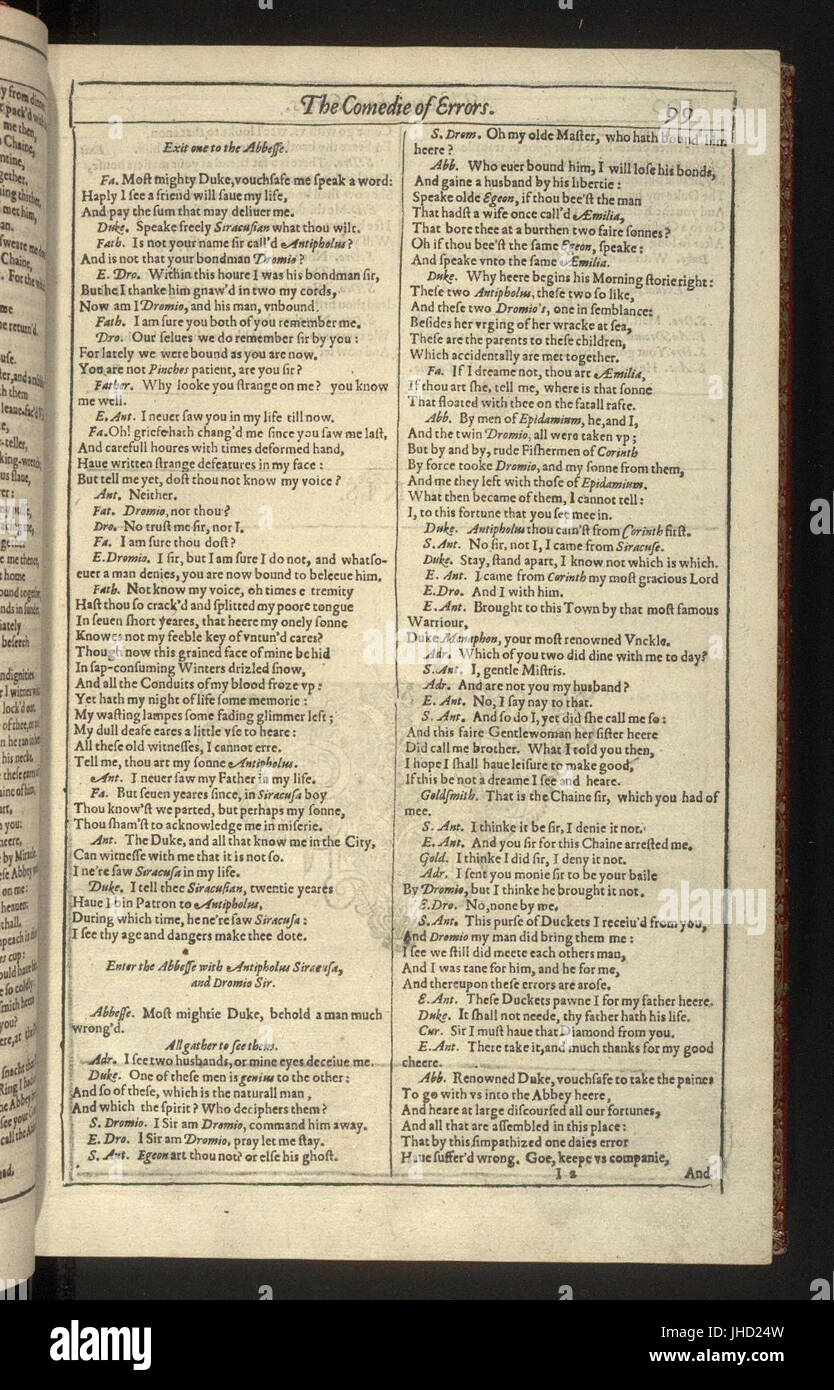 The Comedie of Errors. 99
Exit one to the Abbesse.
Fa. Most mighty Duke, vouchsafe me speak a word:
Haply I see a friend will saue my life,
And pay the sum that may deliuer me.
Duke. Speake freely Siracusian what thou wilt.
Fath. Is not your name sir call'd Antipholus?
And is not that your bondman Dromio?
E. Dro. Within this houre I was his bondman sir,
But he I thanke him gnaw'd in two my cords,
Now am I Dromio, and his man, vnbound.
Fath. I am sure you both of you remember me.
Dro. Our selues we do remember sir by you:
For lately we were bound as you are now.
You are not Pinches patient, are you sir?
Father. Why looke you strange on me? you know
me well.
E. Ant. I neuer saw you in my life till now.
Fa. Oh! griefe hath chang'd me since you saw me last,
And carefull houres with times deformed hand,
Haue written strange defeatures in my face:
But tell me yet, dost thou not know my voice?
Ant. Neither.
Fat. Dromio, nor thou?
Dro. No trust me sir, nor I.
Fa. I am sure thou dost?
E. Dromio. I sir, but I am sure I do not, and whatso-
euer a man denies, you are now bound to beleeue him.
Fath. Not know my voice, oh times e tremity
Hast thou so crack'd and splitted my poore tongue
In seuen short yeares, that heere my onely sonne
Knowes not my feeble key of vntun'd cares?
Though now this grained face of mine be hid
In sap-consuming Winters drizled snow,
And all the Conduits of my blood froze vp:
Yet hath my night of life some memorie:
My wasting lampes some fading glimmer left;
My dull deafe eares a little vse to heare:
All these old witnesses, I cannot erre.
Tell me, thou art my sonne Antipholus.
Ant. I neuer saw my Father in my life.
Fa. But seuen yeares since, in Siracusa boy
Thou know'st we parted, but perhaps my sonne,
Thou sham'st to acknowledge me in miserie.
Ant. The Duke, and all that know me in the City,
Can witnesse with me that it is not so.
I ne're saw Siracusa in my life.
Duke. I tell thee Siracusian, twentie yeares
Haue I bin Patron to Antipholus,
During which time, he ne're saw Siracusa:
I see thy age and dangers make thee dote.
Enter the Abbesse with Antipholus Siracusa,
and Dromio Sir.
Abbesse. Most mightie Duke, behold a man much
wrong'd.
All gather to see them.
Adr. I see two husbands, or mine eyes deceiue me.
Duke. One of these men is genius to the other:
And so of these, which is the naturall man,
And which the spirit? Who deciphers them?
S. Dromio. I Sir am Dromio, command him away.
E. Dro. I Sir am Dromio, pray let me stay.
S. Ant. Egeon art thou not? or else his ghost.
S. Drom. Oh my olde Master, who hath bound him
heere?
Abb. Who euer bound him, I will lose his bonds,
And gaine a husband by his libertie:
Speake olde Egeon, if thou bee'st the man
That hadst a wife once call'd Æmilia,
That bore thee at a burthen two faire sonnes?
Oh if thou bee'st the same Egeon, speake:
And speake vnto the same Æmilia.
Duke. Why heere begins his Morning storie right:
These two Antipholus, these two so like,
And these two Dromio's, one in semblance:
Besides her vrging of her wracke at sea,
These are the parents to these children,
Which accidentally are met together.
Fa. If I dreame not, thou art Æmilia,
If thou art she, tell me, where is that sonne
That floated with thee on the fatall rafte.
Abb. By men of Epidamium, he, and I,
And the twin Dromio, all were taken vp;
But by and by, rude Fishermen of Corinth
By force tooke Dromio, and my sonne from them,
And me they left with those of Epidamium.
What then became of them, I cannot tell:
I, to this fortune that you see mee in.
Duke. Antipholus thou cam'st from Corinth first.
S. Ant. No sir, not I, I came from Siracuse.
Duke. Stay, stand apart, I know not which is which.
E. Ant. I came from Corinth my most gracious Lord
E. Dro. And I with him.
E. Ant. Brought to this Town by that most famous
Warriour,
Duke Menaphon, your most renowned Vnckle.
Adr. Which of you two did dine with me to day?
S. Ant. I, gentle Mistris.
Adr. And are not you my husband?
E. Ant. No, I say nay to that.
S. Ant. And so do I, yet did she call me so:
And this faire Gentlewoman her sister heere
Did call me brother. What I told you then,
I hope I shall haue leisure to make good,
If this be not a dreame I see and heare.
Goldsmith. That is the Chaine sir, which you had of
mee.
S. Ant. I thinke it be sir, I denie it not.
E. Ant. And you sir for this Chaine arrested me.
Gold. I thinke I did sir, I deny it not.
Adr. I sent you monie sir to be your baile
By Dromio, but I thinke he brought it not.
E. Dro. No, none by me.
S. Ant. This purse of Duckets I receiu'd from you,
And Dromio my man did bring them me:
I see we still did meete each others man,
And I was tane for him, and he for me,
And thereupon these errors are arose.
E. Ant. These Duckets pawne I for my father heere.
Duke. It shall not neede, thy father hath his life.
Cur. Sir I must haue that Diamond from you.
E. Ant. There take it, and much thanks for my good
cheere.
Abb. Renowned Duke, vouchsafe to take the paines
To go with vs into the Abbey heere,
And heare at large discoursed all our fortunes,
And all that are assembled in this place:
That by this simpathized one daies error
Haue suffer'd wrong. Goe, keepe vs companie,
I 2 And
alamy stock photo
JHD24W
www.alamy.com